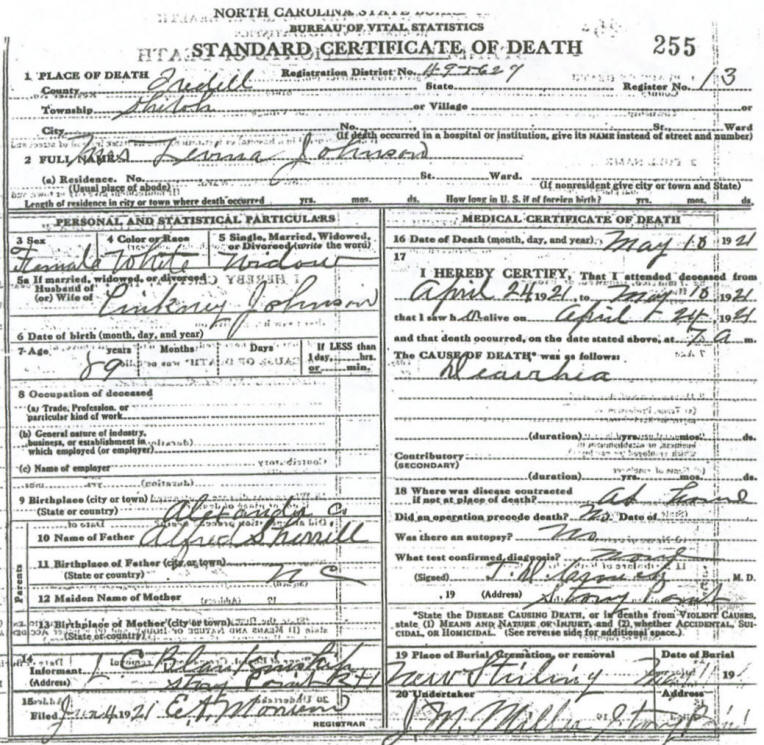 NORTH CAROLINA STATE
BUREAU OF VITAL STATISTICS
STANDARD CERTIFICATE OF DEATH 255
1 PLACE OF DEATH Registration District No. 49-5627 Register No. 13
County Iredell State
Township Shiloh or Village or
City No. St. Ward
(If death occurred in a hospital or institution, give its NAME instead of street and number)
2 FULL NAME Mrs Levina Johnson
(a) Residence. No. St. Ward.
(Usual place of abode) (If nonresident give city or town and State)
Length of residence in city or town where death occurred yrs. mos. ds. How long in U.S. if of foreign birth? yrs. mos. ds.
PERSONAL AND STATISTICAL PARTICULARS
3 Sex 4 Color or Race 5 Single, Married, Widowed, or Divorced (write the word)
Female White Widow
5a If married, widowed, or divorced
Husband of
(or) Wife of Pinkney Johnson
6 Date of birth (month, day, and year)
7-Age years Months Days If LESS than 1 day, hrs. or min.
89
8 Occupation of deceased
(a) Trade, Profession, or
particular kind of work
(b) General nature of industry,
business, or establishment in
which employed (or employer)
(c) Name of employer
9 Birthplace (city or town)
(State or country) Alexander C
Parents
10 Name of Father Alfred Sherrill
11 Birthplace of Father (city or town)
(State or country) N C
12 Maiden Name of Mother
13 Birthplace of Mother (city or town)
(State or country)
14
Informant
(Address) Stony Point R#1
15
Filed 4 1921 E. A.
REGISTRAR
MEDICAL CERTIFICATE OF DEATH
16 Date of Death (month, day, and year) May 18 1921
17
I HEREBY CERTIFY, That I attended deceased from
April 24 1921, to May 18 1921
that I saw h er alive on April 24 1921
and that death occurred, on the date stated above, at 7 a m.
The CAUSE OF DEATH* was as follows:
Diearrhia
(duration) yrs. mos. ds.
Contributory
(SECONDARY)
(duration) yrs. mos. ds.
18 Where was disease contracted
if not at place of death? At home
Did an operation precede death? No Date of
Was there an autopsy? No
What test confirmed diagnosis? None
(Signed) M. D.
, 19 (Address) Stony Point
*State the DISEASE CAUSING DEATH, or in deaths from VIOLENT CAUSES,
state (1) MEANS AND NATURE OF INJURY, and (2) whether ACCIDENTAL, SUI-
CIDAL, OR HOMICIDAL. (See reverse side for additional space.)
19 Place of Burial, Cremation, or removal Date of Burial
New Stirling 19
20 Undertaker Address
J. M.